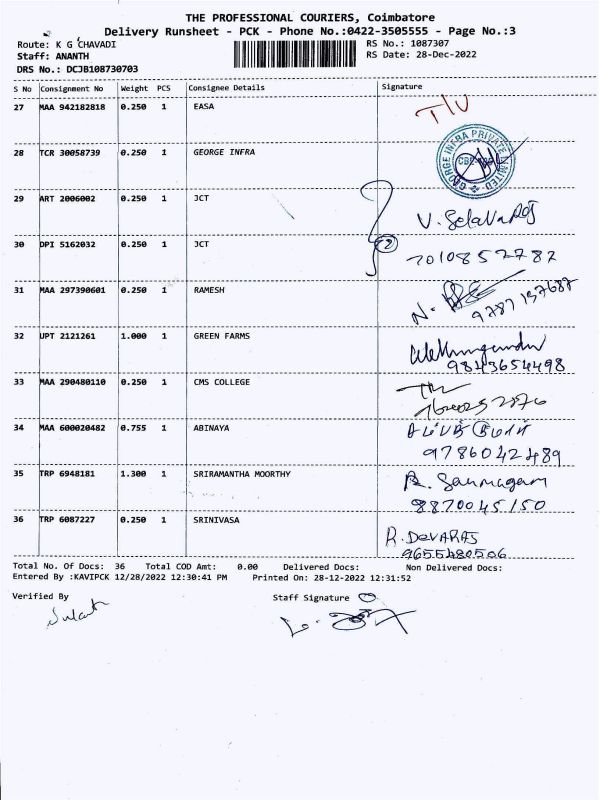 THE PROFESSIONAL COURIERS, Coimbatore
Delivery Runsheet - PCK - Phone No.:0422-3505555 - Page No.:3
Route: K G CHAVADI
RS No.: 1087307
Staff: ANANTH
RS Date: 28-Dec-2022
DRS No.: DCJB108730703
S No Consignment No Weight PCS Consignee Details Signature
27 MAA 942182818 0.250 1 EASA
28 TCR 30058739 0.250 1 GEORGE INFRA
GEORGE INFRA PRIVATE LIMITED
29 ART 2006002 0.250 1 JCT V. Selvaraj
30 DPI 5162032 0.250 1 JCT 2 7010852782
31 MAA 297390601 0.250 1 RAMESH 9787137687
32 UPT 2121261 1.000 1 GREEN FARMS
9843654498
33 MAA 290480110 0.250 1 CMS COLLEGE
34 MAA 600020482 0.755 1 ABINAYA
9786042489
35 TRP 6948181 1.300 1 SRIRAMANTHA MOORTHY
8870045150
36 TRP 6087227 0.250 1 SRINIVASA R. DEVARAJ
9655480506
Total No. Of Docs: 36 Total COD Amt: 0.00 Delivered Docs: Non Delivered Docs:
Entered By :KAVIPCK 12/28/2022 12:30:41 PM Printed On: 28-12-2022 12:31:52
Verified By Staff Signature